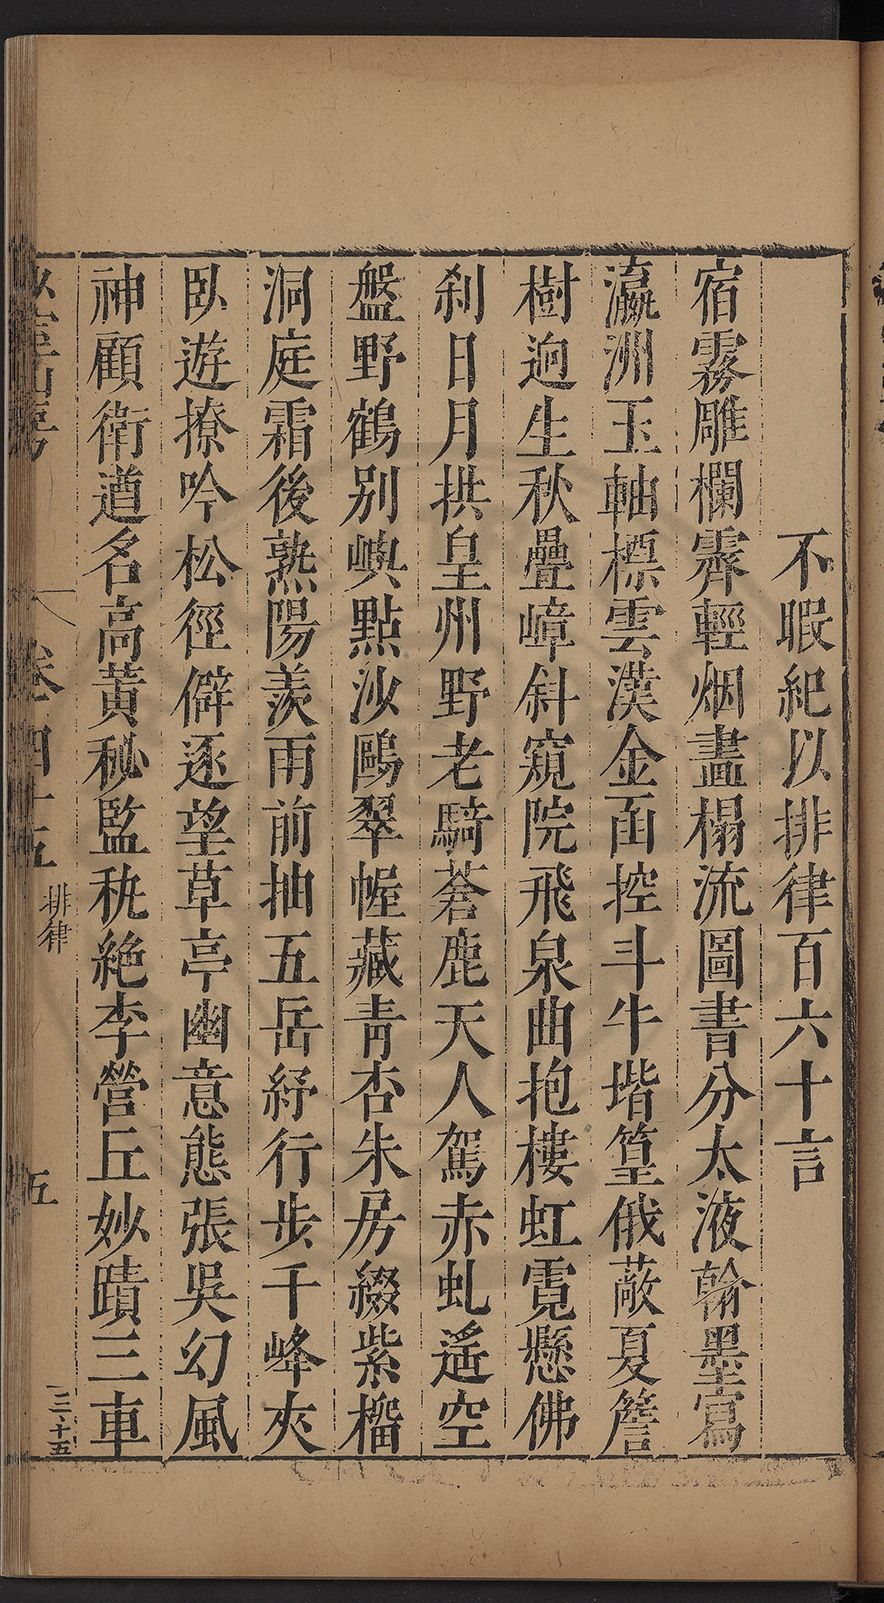 不暇紀以排律百六十言
宿霧雕欄霽輕烟畫榻流圖書分太液翰墨寫
瀛洲玉軸標雲漢金函控斗牛堦篁俄蔽夏簷
樹迥生秋疊嶂斜窺院飛泉曲抱樓虹霓懸佛
刹日月拱皇州野老騎蒼鹿天人駕赤虬遙空
盤野鶴別嶼點沙鷗翠幄藏青杏朱房綴紫榴
洞庭霜後熟陽羨雨前抽五岳紓行步千峰夾
臥遊撩吟松徑僻逐望草亭幽意態張吳幻風
神顧衛遒名高黃秘監秇絕李營丘妙蹟三車
卷四十五 排律 五